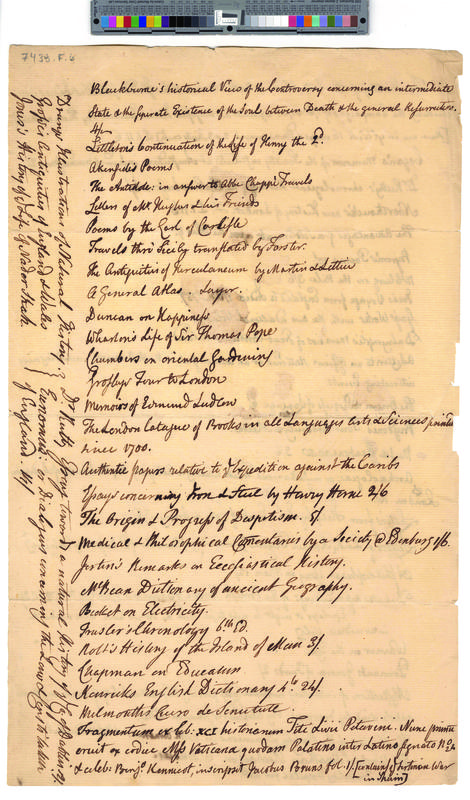 7438.F.
Blackburne's historical View of the Controversy concerning an intermediate
State & the seperate Existence of the Soul between Death & the general Resurrection.
4/
Littleton's Continuation of the Life of Henry the 2d.
Akenside's Poems
The Antidote in answer to Abbe Chappe Travels
Letters of Mr Hughes & his Friends
Poems by the Earl of Carlisle
Travels thro' Sicily translated by Forster.
The Antiquities of Herculaneum by Martin & Lettice
A General Atlas. Sayer.
Duncan on Happiness
Wharton's Life of Sir Thomas Pope
Chambers on oriental Gardening
Grosleys Tour to London
Memoirs of Edmund Ludlow
The London Catalogue of Books in all Languages Arts & Sciences printed
since 1700.
Authentic papers relative to ye Expedition against the Caribs
Essays concerning Iron & Steel by Henry Horne 2/6
The Origin & Progress of Despotism. 5/
Medical & Philosophical Commentaries by a Society @ Edinburg 1/6.
Jortin's Remarks on Ecclesiastical History.
McBean Dictionary of ancient Geography.
Becket on Electricity.
Trusler's Chronology 6th Ed.
Rolt's History of the Island of Man 3/.
Chapman on Education
Kenricks English Dictionary 4to 24/.
Melmouth's Cicero de Senectute.
Fragmentum ex lib. XCI historiarum Titi Livii Patavini. Nunc primum
eruit ex codice Mss Vaticana quodam Palatino inter Latino signato No 24
& celeb: Kennicot, inscripsit Jacobus Bruns fol. 1/. [contains Sertorian War
in Spain]
Drurys Illustrations of Natural History.
Grose's Antiquities of England & Wales
Jones's History of ye Life of Nader Shah
Dr Rutty Essay toward a natural History of ye Cy of Dublin
Eunomus or Dialogues concerning the Law & Constitution
of England